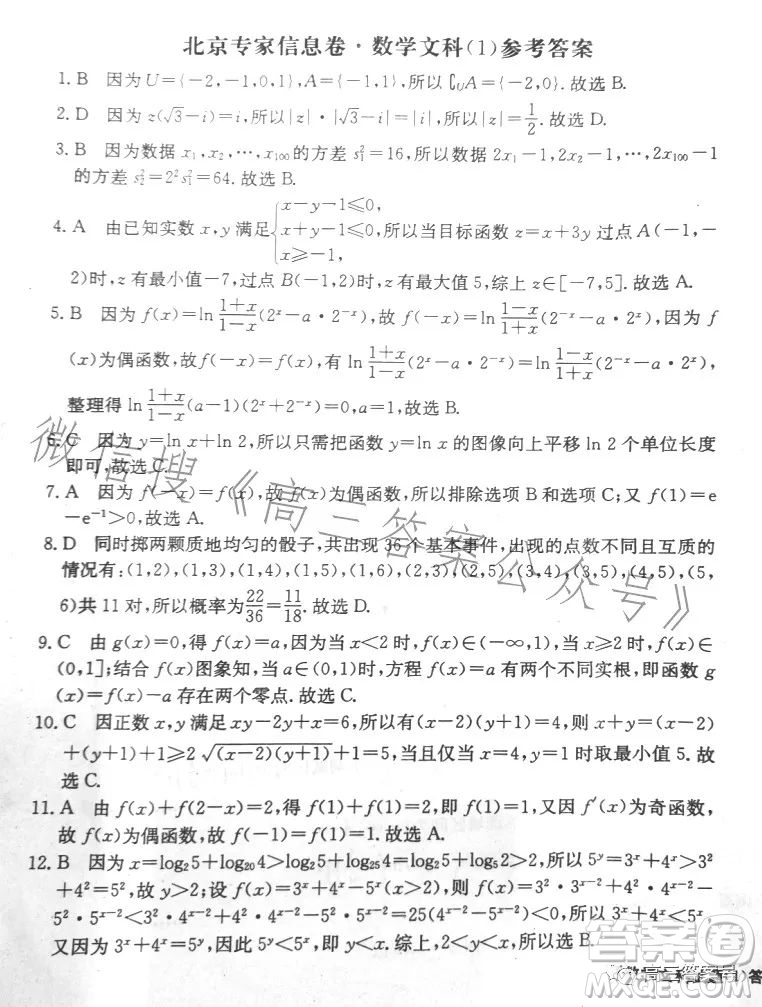 北京专家信息卷·数学文科(1)参考答案
1. B 因为U={-2,-1,0,1},A={-1,1},所以∁UA={-2,0}.故选B.
2. D 因为z(√3-i)=i,所以|z|·|√3-i|=|i|,所以|z|=1/2.故选D.
3. B 因为数据x₁,x₂,…,x₁₀₀的方差s₁²=16,所以数据2x₁-1,2x₂-1,…,2x₁₀₀-1
的方差s₂²=2²s₁²=64.故选B.
4. A 由已知实数x,y满足{x-y-1≤0, x+y-1≤0, x≥-1,所以当目标函数z=x+3y过点A(-1,
-2)时,z有最小值-7,过点B(-1,2)时,z有最大值5,综上z∈[-7,5].故选A.
5. B 因为f(x)=ln (1+x)/(1-x) (2ˣ-a·2⁻ˣ),故f(-x)=ln (1-x)/(1+x) (2⁻ˣ-a·2ˣ),因为f
(x)为偶函数,故f(-x)=f(x),有ln (1+x)/(1-x) (2ˣ-a·2⁻ˣ)=ln (1-x)/(1+x) (2⁻ˣ-a·2ˣ),
整理得ln (1+x)/(1-x) (a-1)(2ˣ+2⁻ˣ)=0,a=1.故选B.
6. C 因为y=ln x+ln 2,所以只需把函数y=ln x的图像向上平移ln 2个单位长度
即可,故选C.
7. A 因为f(-x)=f(x)为偶函数,所以排除选项B和选项C;又f(1)=e
-e⁻¹>0,故选A.
8. D 同时掷两颗质地均匀的骰子,共出现36个基本事件,出现的点数不同且互质的
情况有:(1,2),(1,3),(1,4),(1,5),(1,6),(2,3),(2,5),(3,4),(3,5),(4,5),(5,
6)共11对,所以概率为22/36=11/18.故选D.
9. C 由g(x)=0,得f(x)=a,因为当x<2时,f(x)∈(-∞,1),当x≥2时,f(x)∈
(0,1];结合f(x)图象知,当a∈(0,1)时,方程f(x)=a有两个不同实根,即函数g
(x)=f(x)-a存在两个零点.故选C.
10. C 因正数x,y满足xy-2y+x=6,所以有(x-2)(y+1)=4,则x+y-1=(x-2)
+(y+1)≥2√((x-2)(y+1))=4,当且仅当x=4,y=1时取最小值5.故
选C.
11. A 由f(x)+f(2-x)=2,得f(1)+f(1)=2,即f(1)=1,又因f′(x)为奇函数,
故f(x)为偶函数,故f(-1)=f(1)=1.故选A.
12. B 因为x=log₂5+log₂₀4>log₂5+log₂₅4=log₂5+log₅2>2,所以5ʸ=3ˣ+4ˣ>3²
+4²=5²,故y>2;设f(x)=3ˣ+4ˣ-5ˣ(x>2),则f(x)=9·3ˣ⁻²+16·4ˣ⁻²-
5²·5ˣ⁻²<3²·4ˣ⁻²+4²·4ˣ⁻²-5²·5ˣ⁻²=5²(4ˣ⁻²-5ˣ⁻²)<0,所以3ˣ+4ˣ<5ˣ,
又因为3ˣ+4ˣ=5ʸ,因此5ʸ<5ˣ,即y<x.综上,2<y<x,故选B.
微信搜《高三答案公众号》
答案圈